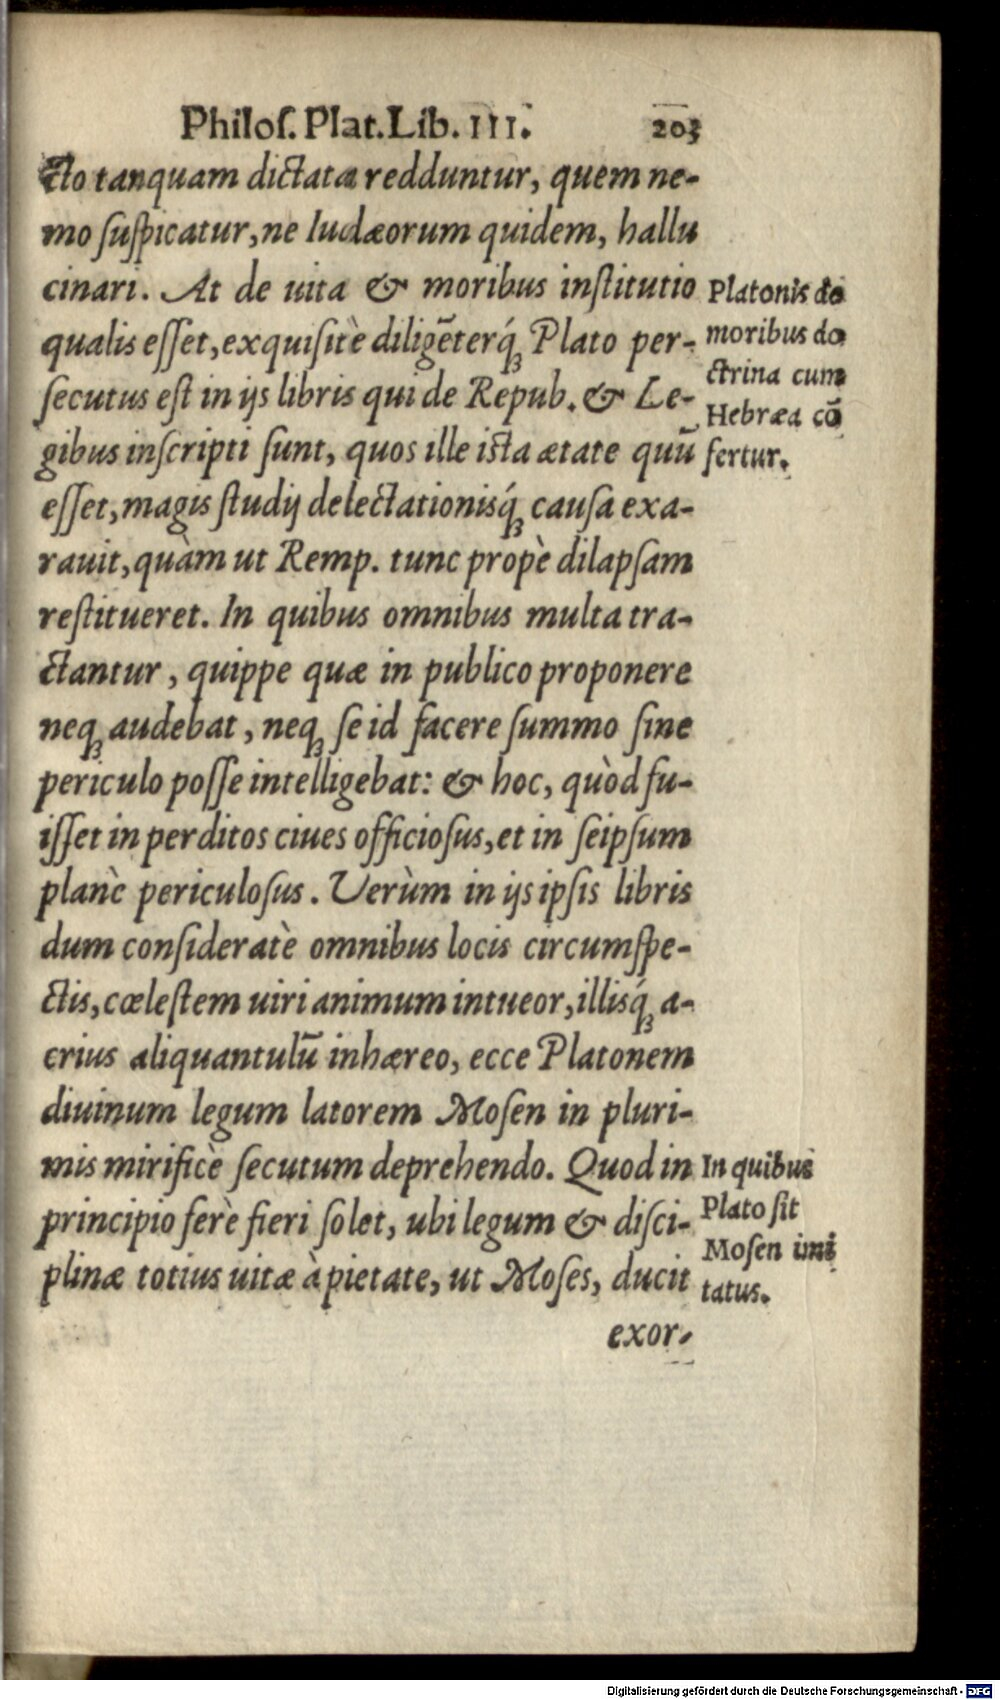 Philoſ. Plat. Lib. III. 203
cto tanquam dictata redduntur, quem ne-
mo ſuſpicatur, ne Iudæorum quidem, hallu
cinari. At de uita & moribus inſtitutio
qualis eſſet, exquiſitè diligēterq́ꝫ Plato per-
ſecutus eſt in ijs libris qui de Repub. & Le-
gibus inſcripti ſunt, quos ille iſta ætate quū
eſſet, magis ſtudij delectationisq́ꝫ cauſa exa-
rauit, quàm ut Remp. tunc propè dilapſam
reſtitueret. In quibus omnibus multa tra-
ctantur, quippe quæ in publico proponere
neqꝫ audebat, neqꝫ ſe id facere ſummo ſine
periculo poſſe intelligebat: & hoc, quòd fu-
iſſet in perditos ciues officioſus, et in ſeipſum
planè periculoſus. Verùm in ijs ipſis libris
dum conſideratè omnibus locis circumſpe-
ctis, cœleſtem uiri animum intueor, illisq́ꝫ a-
crius aliquantulū inhæreo, ecce Platonem
diuinum legum latorem Moſen in pluri-
mis mirificè ſecutum deprehendo. Quod in
principio ferè fieri ſolet, ubi legum & diſci-
plinæ totius uitæ à pietate, ut Moſes, ducit
exor-
Platonis de
moribus do
ctrina cum
Hebræa cō
fertur.
In quibus
Plato ſit
Moſen imi
tatus.
Digitalisierung gefördert durch die Deutsche Forschungsgemeinschaft - DFG